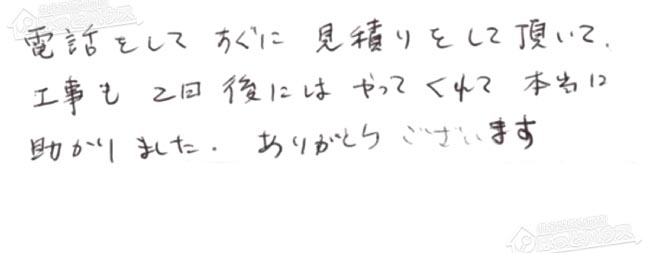 電話をして すぐに 見積りをして頂いて、
工事も 2日後には やってくれて 本当に
助かりました. ありがとう ございます